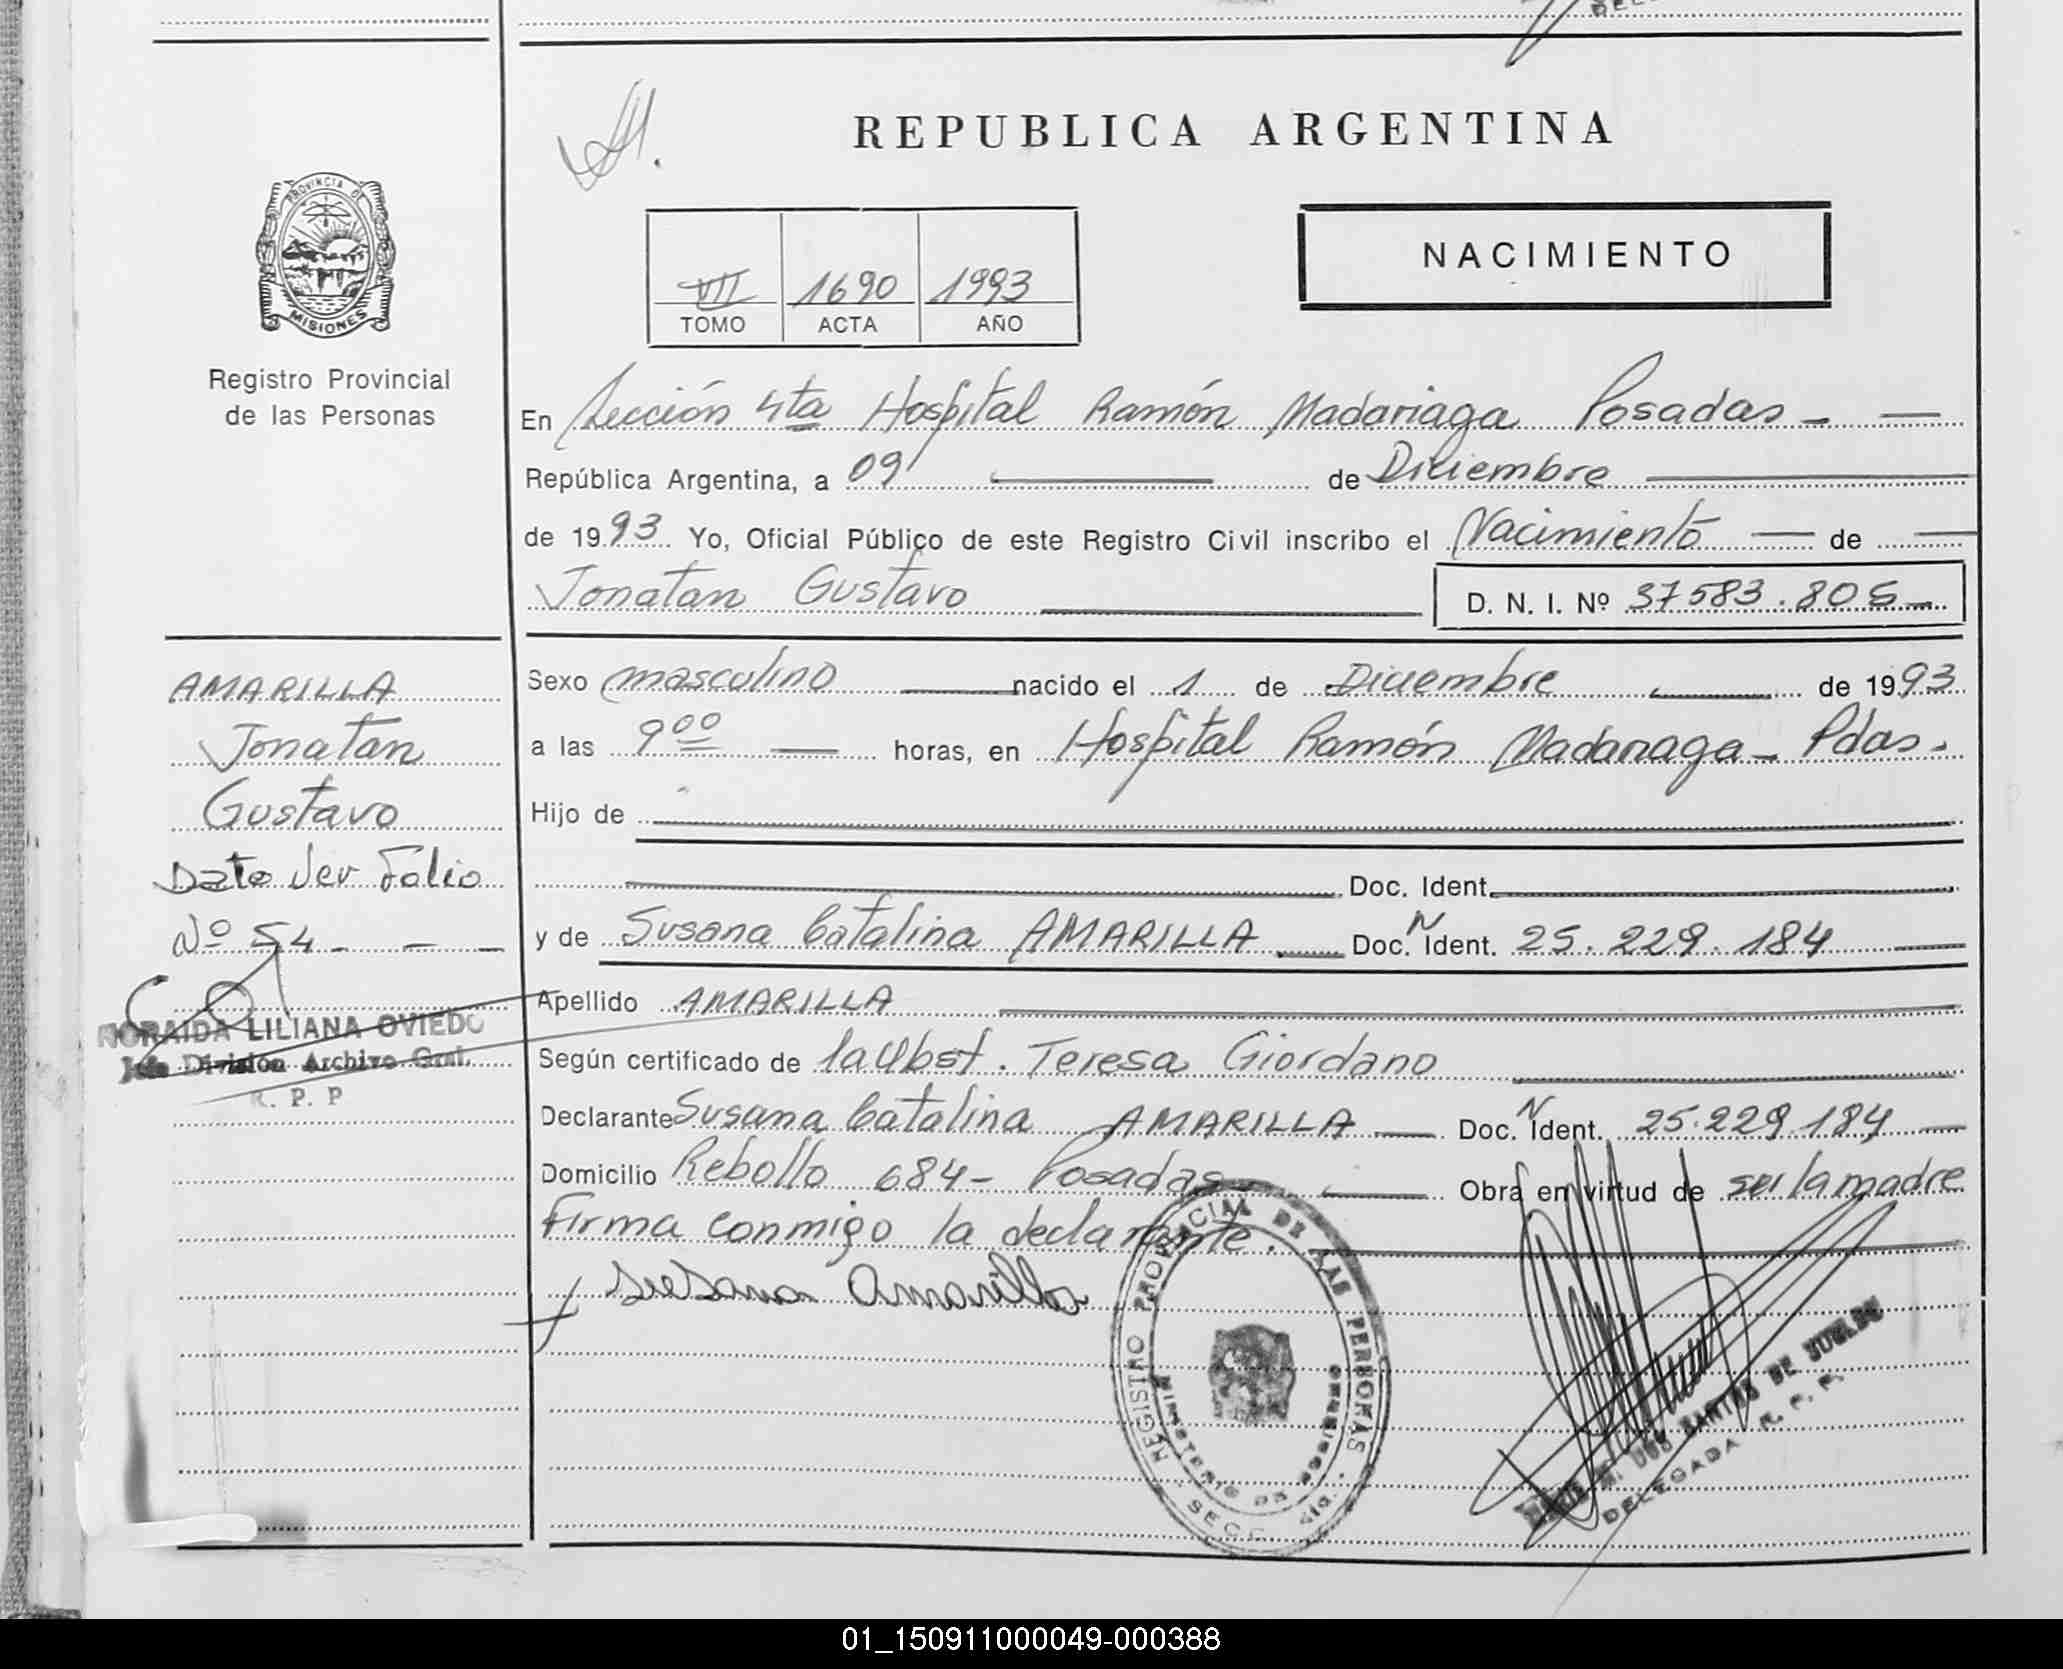 REPUBLICA ARGENTINA
PROVINCIA DE
MISIONES
Registro Provincial
de las Personas
VII 1690 1993
TOMO ACTA AÑO
NACIMIENTO
En Sección 4ta Hospital Ramón Madariaga Posadas - —
República Argentina, a 09 — de Diciembre —
de 1993 Yo, Oficial Público de este Registro Civil inscribo el Nacimiento — de —
Jonatan Gustavo — D. N. I. Nº 37583.805 —
AMARILLA
Jonatan
Gustavo
Dato Ver Folio
Nº 54 - - -
NORAIDA LILIANA OVIEDO
Jefe División Archivo Gral.
R. P. P
Sexo masculino — nacido el 1 de Diciembre — de 1993
a las 9 00 — horas, en Hospital Ramón Madariaga - Pdas.
Hijo de —
— Doc. Ident. —
y de Susana Catalina AMARILLA — Doc. N Ident. 25.229.184 —
Apellido AMARILLA —
Según certificado de la Obst. Teresa Giordano —
Declarante Susana Catalina AMARILLA — Doc. N Ident. 25.229.184 —
Domicilio Rebollo 684 - Posadas — Obra en virtud de ser la madre
Firma conmigo la declarante. —
Susana Amarilla
REGISTRO PROVINCIAL DE LAS PERSONAS
MINISTERIO DE GOBIERNO
SECC. 4ta.
DOS SANTOS DE
DELEGADA R. P. P.
01_150911000049-000388